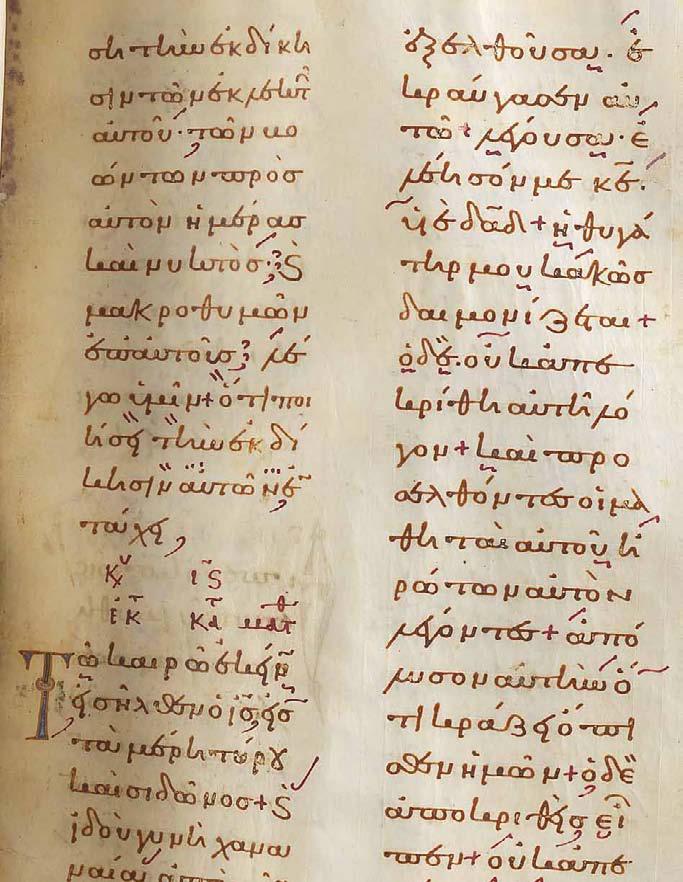 ση τὴν ἐκδίκη
σιν τῶν ἐκλεκτ
αὐτοῦ· τῶν βο
ών των πρὸσ
αὐτὸν ἡμέρασ
καὶ νυκτὸσ· ϗ
μακροθυμῶν
ἐπαὐτοῖσ; λέ
γω ὑμῖν + ὅτι ποι
ήσει τὴν ἐκδί
κησιν αὐτῶν ἐν
τάχει,
ἐκ τ κτ ματθ
Τῶ καιρῶ ἐκείν
εἰσῆλθεν ὁ ις εἰσ
τὰ μέρη τύρου
καὶ σιδῶνοσ + ϗ
ἰδοὺ γυνὴ χανα
ναία ἀπὸ
ἐξελθοῦσα· ἐ
κραύγασεν αὐ
τῶ + λέγουσα· ἐ
λέησόν με κε·
υἱὲ δαδ + ἡ θυγά
τηρ μου κακῶσ
δαιμονίζεται +
ὁ δὲ· οὐκ ἀπε
κρίθη αὐτῆ λό
γον + καὶ προ
σελθόντεσ οἱ μα
θηταὶ αὐτοῦ ἠ
ρώτων αὐτὸν
λέγοντεσ + ἀπό
λυσον αὐτὴν ὅ
τι κράζει ὄπι
σθεν ἡμῶν + ὁ δὲ
ἀποκριθεὶσ εἶ
πεν + οὐκ ἀπε